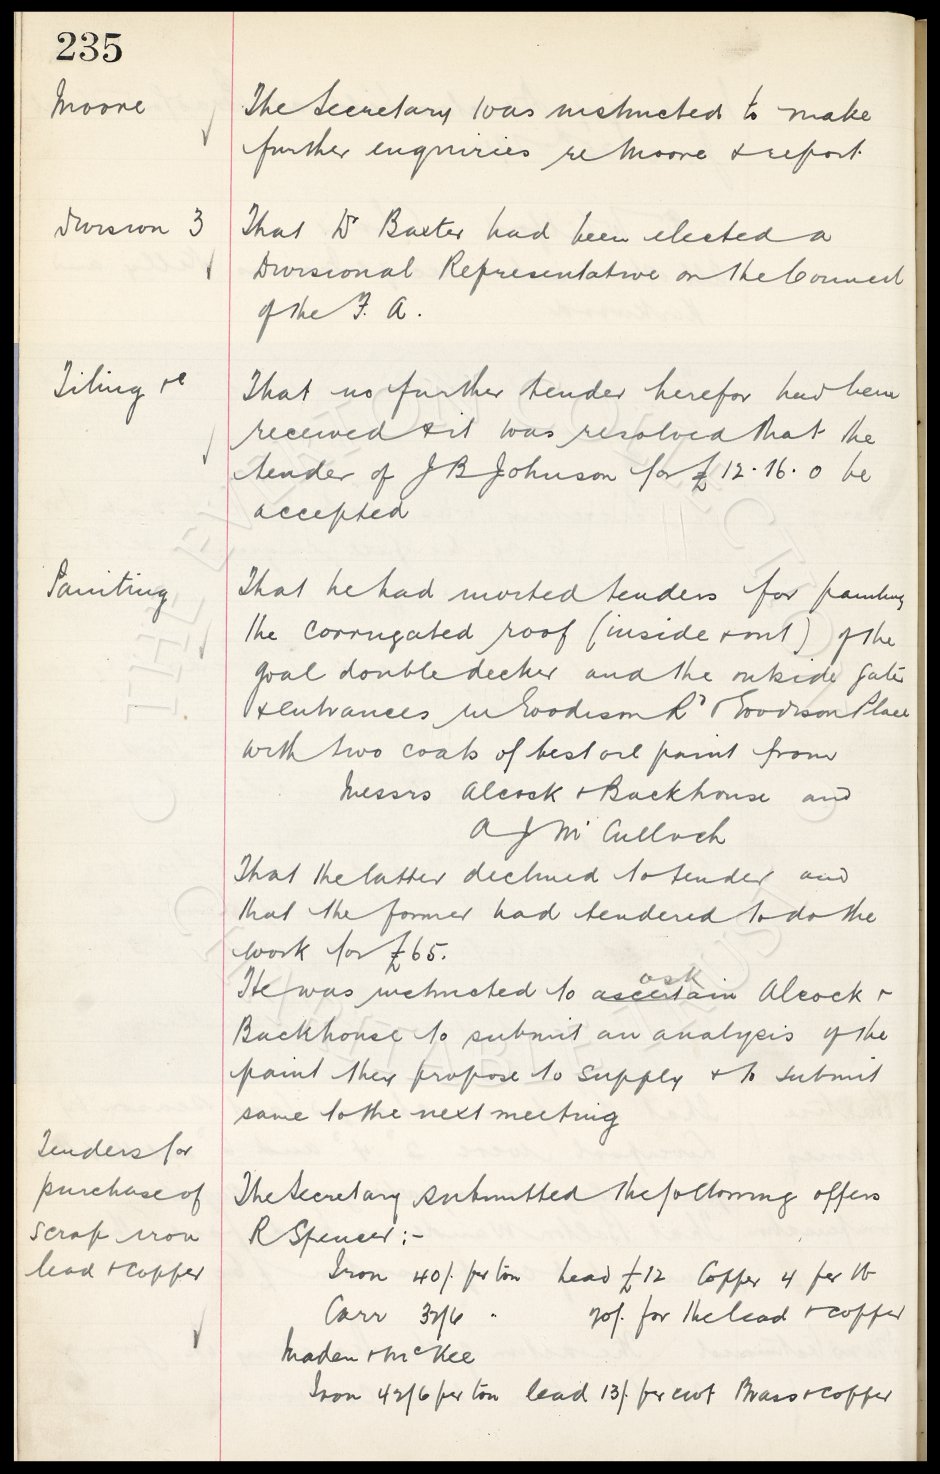 235
Moore
The Secretary was instructed to make
further enquiries re Moore & report.
Division 3
That Dr Baxter had been elected a
Divisional Representative on the Council
of the F. A.
Tiling re
That no further tender herefor had been
received & it was resolved that the
tender of J B Johnson for £12.16.0 be
accepted
Painting
That he had invited tenders for painting
the corrugated roof (inside & out) of the
goal double decker and the outside gates
& entrances in Goodison Rd & Goodison Place
with two coats of best oil paint from
Messrs Alcock & Backhouse and
A J McCulloch
That the latter declined to tender and
that the former had tendered to do the
work for £65.
ask
He was instructed to ascertain Alcock &
Backhouse to submit an analysis of the
paint they propose to supply & to submit
same to the next meeting
Tenders for
purchase of
scrap iron
lead & copper
The Secretary submitted the following offers
R Spencer :-
Iron 40/. per ton lead £12 Copper 4 per lb
Carr 32/6 " 20/. for the lead & copper
Maden & McKee
Iron 42/6 per ton lead 13/. per cwt Brass & copper